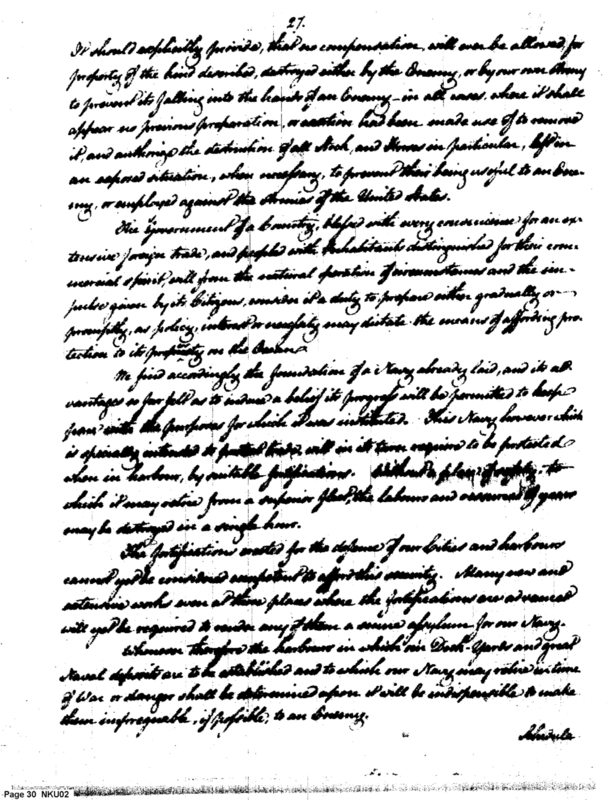 27.
It should explicitly provide, that no compensation, will ever be allowed, for
property of the kind described, destroyed either by the Enemy, or by our own Army
to prevent its falling into the hands of an Enemy in all cases, where it shall
appear no previous preparation, or exertion had been made use of to remove
it, and authorize the destruction of all Stock, and Stores in particular, left in
an exposed situation, when necessary, to prevent their being useful to an Ene-
my, or employed against the Armies of the United States.
The Government of a Country, blessed with every convenience for an ex-
tensive foreign trade, and peopled with Inhabitants distinguished for their com-
mercial spirit, will from the natural operation of circumstances and the im-
pulse given by its Citizens, consider it a duty to prepare either gradually or
promptly, as policy, interest or necessity may dictate the means of affording pro-
tection to its property on the Ocean.
We find accordingly the foundation of a Navy already laid, and its ad-
vantages so far felt as to induce a belief its progress will be permitted to keep
pace with the purposes for which it was instituted. This Navy however which
is specially intended to protect trade, will in its turn require to be protected
when in harbour, by suitable fortifications. Without a place of safety, to
which it may retire from a superior fleet, the labours and resources of years
may be destroyed in a single hour.
The fortifications erected for the defense of our Cities and harbours
cannot yet be considered competent to afford this security. Many new and
extensive works even at those places where the fortifications are advanced
will yet be required to render any of them a secure asylum for our Navy.
Whenever therefore the harbours in which our Dock-Yards and great
Naval deposits are to be established and to which our Navy may retire in time
of War or danger shall be determined upon it will be indispensible to make
them impregnable, if possible, to an Enemy.
Page 30 NKU02